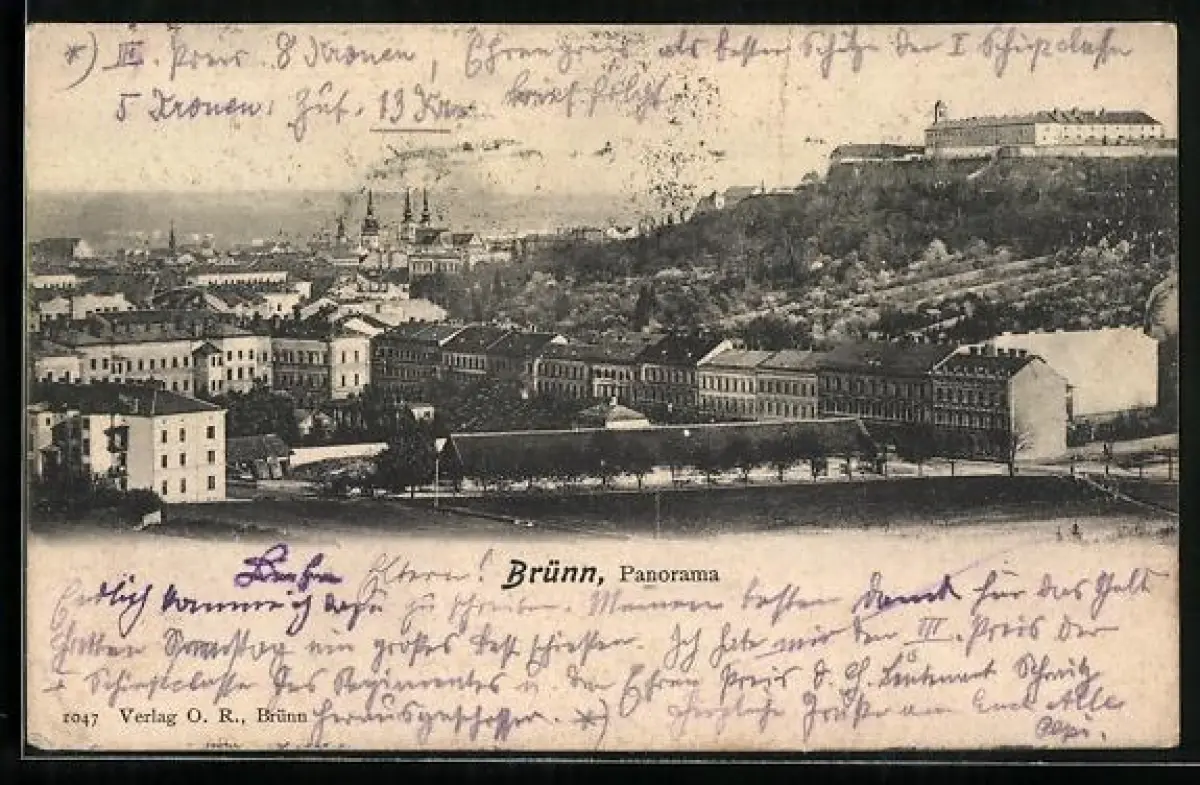 *) III. Preis 8 Kronen, Ehrenpreis als bester Schütze der I Schießclasse
5 Kronen: Zus. 13 Kr. Brief folgt
Liebe Eltern! Brünn, Panorama
Endlich komme ich dazu zu schreiben. Meinen besten Dank für das Geld
Hatten Samstag ein großes Fest schießen. Ich habe mir den III. Preis der
I Schießclasse des Regimentes u. den Ehren Preis d. H. Leutenant
herausgeschossen. *) Herzliche Grüße an Euch Alle
1047 Verlag O. R., Brünn
Pepi.